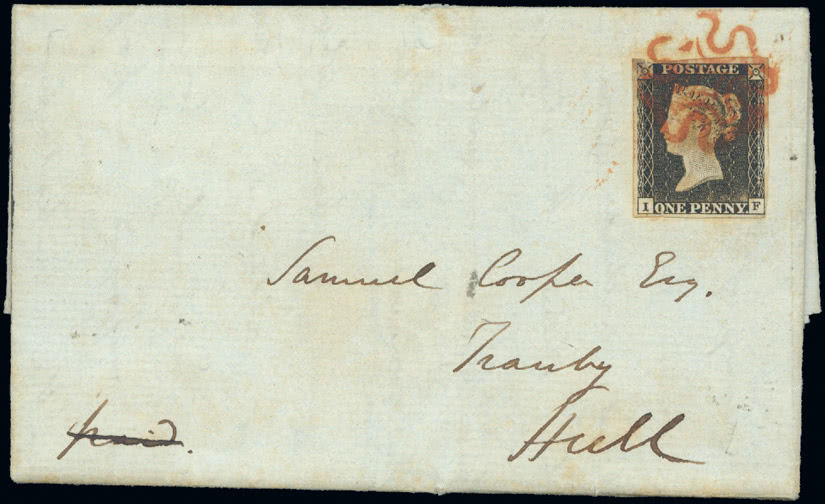 POSTAGE
I ONE PENNY. F
Samuel Cooper Esq.
Tranby
Hull
paid.